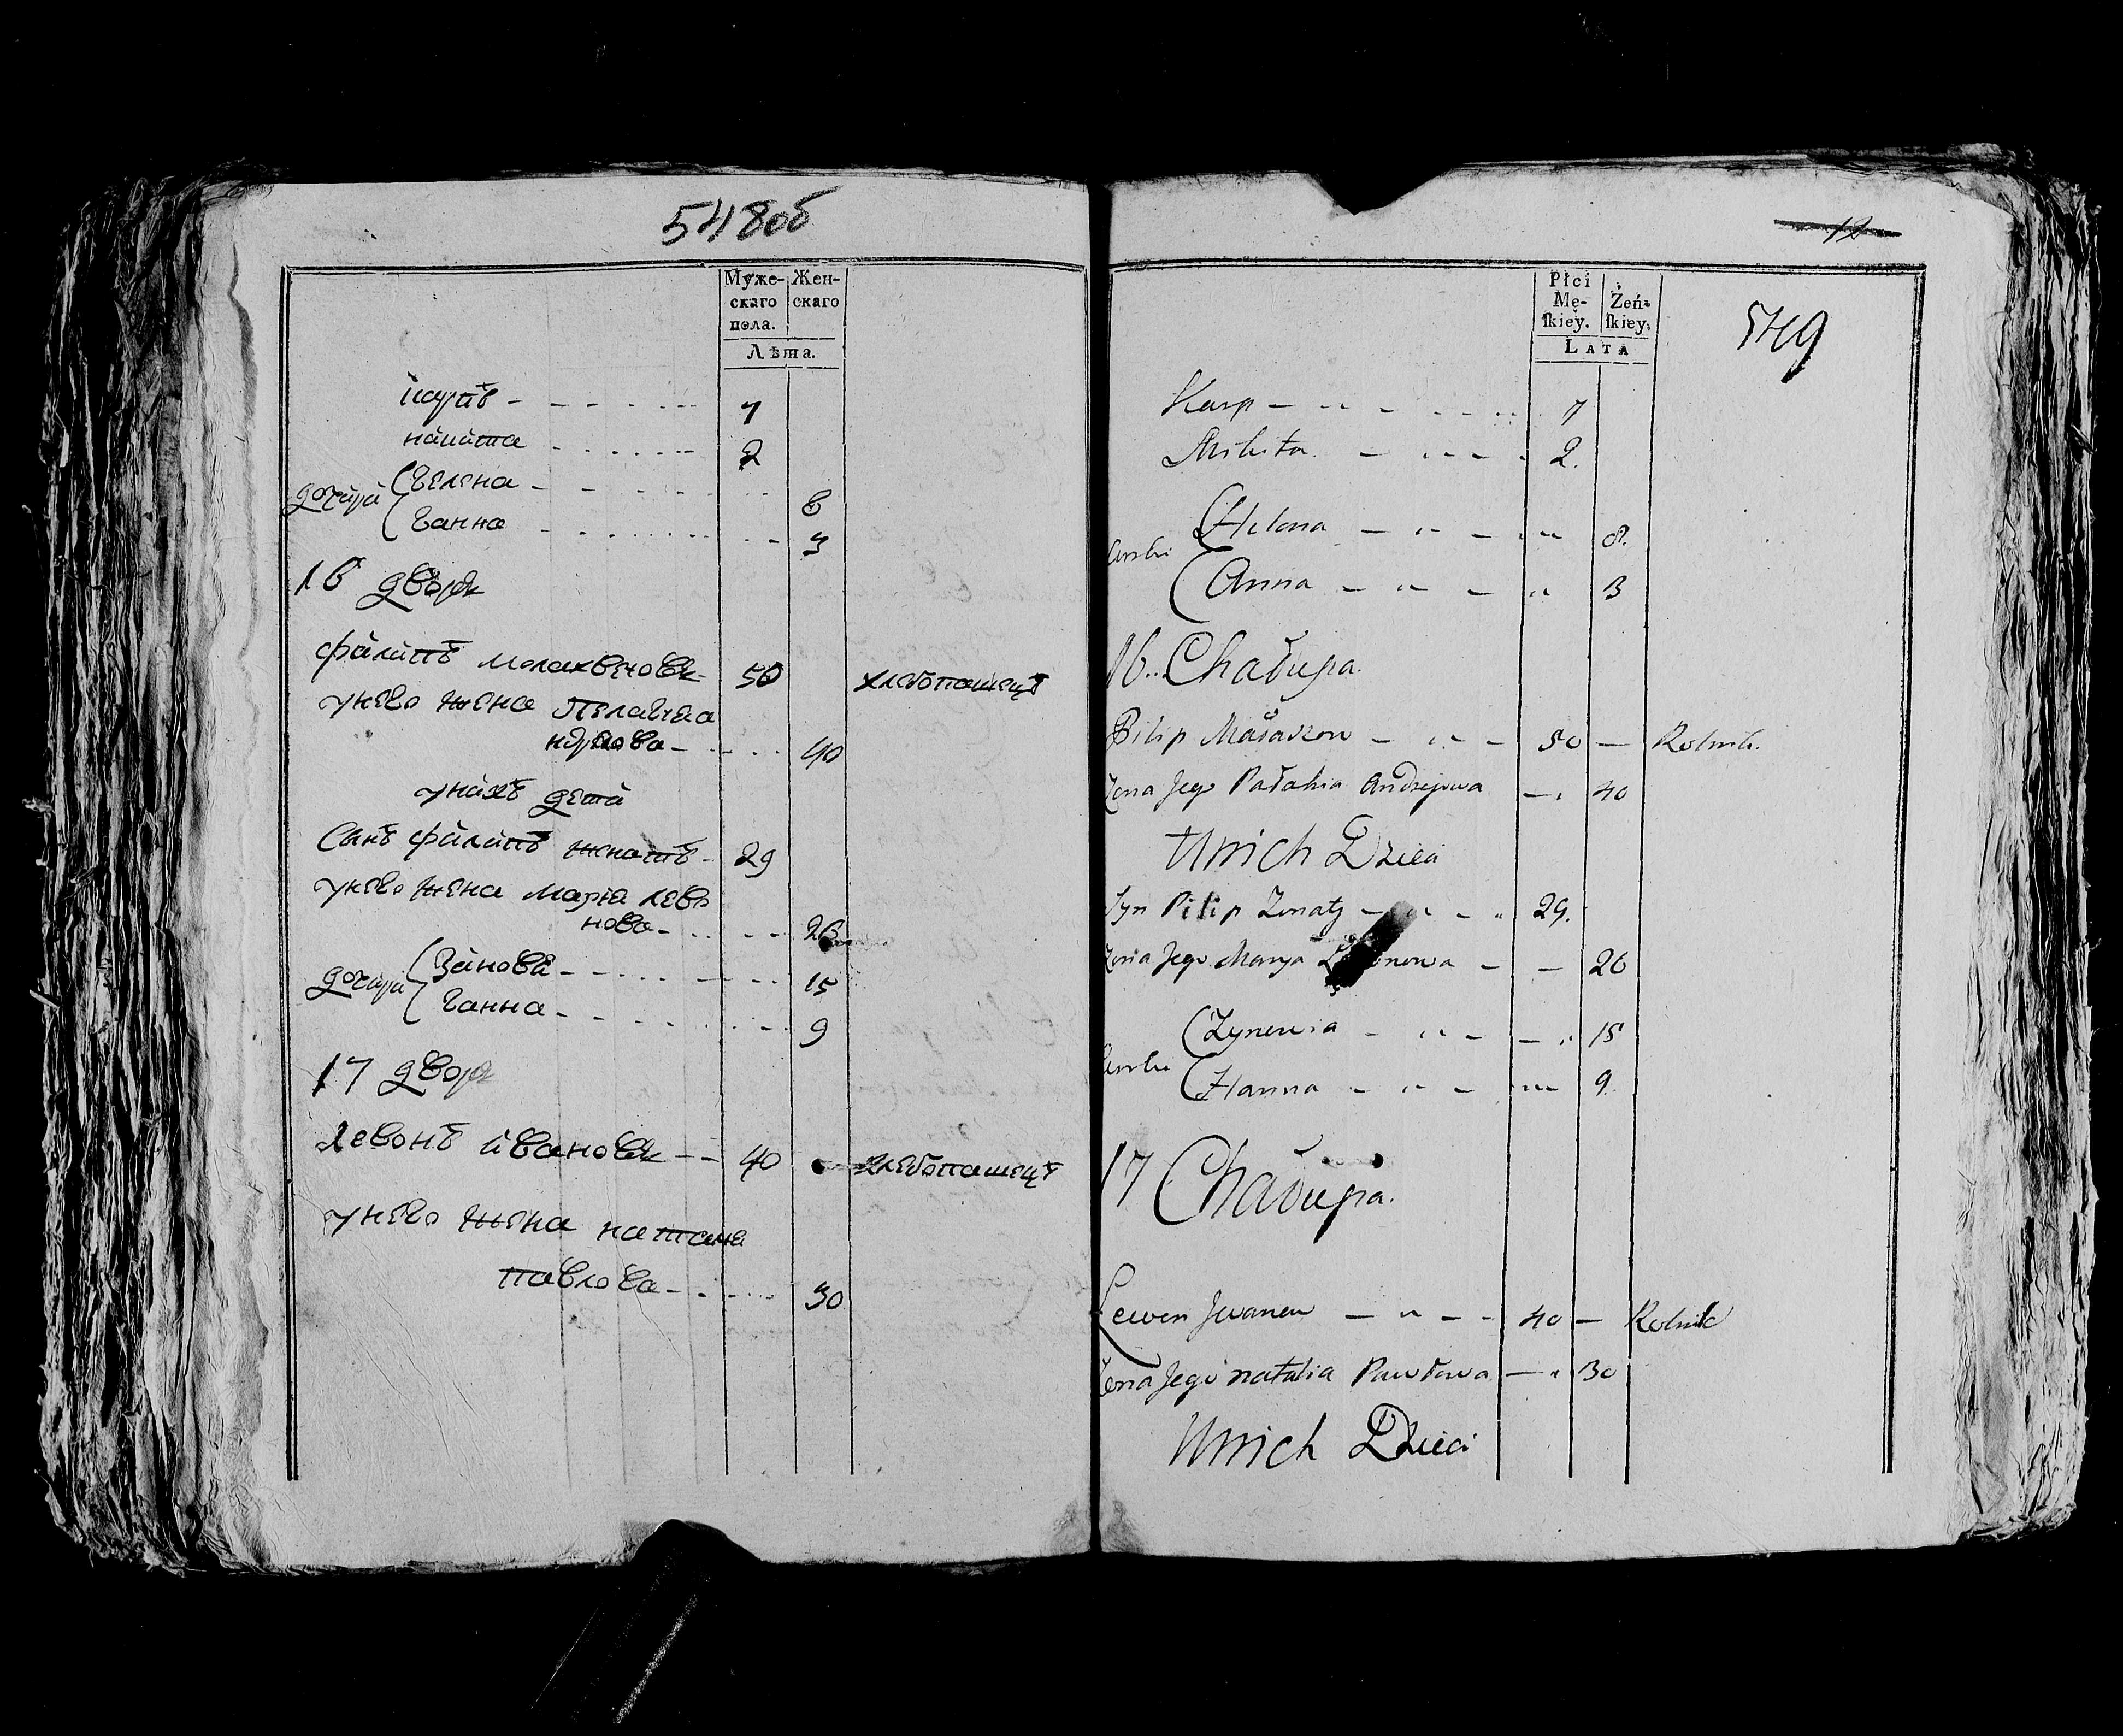 548об
Муже-
скаго
пола.
Жен-
скаго
Лѣта.
карпъ 7
никита 2
дочери
гелена 8
ганна 3
16 дворъ
филипъ малахвеювъ 50 хлебопашецъ
унего жена пелагиа
40
унихъ дети
Сынъ филипъ женатъ 29
унего жена мариа лево
нова 26
дочери
Зиновӣ 15
ганна 9
17 дворъ
левонъ ивановъ 40 хлебопашецъ
унего жена
павлова 30
12
549
Płci
Mę-
ſkiey.
Żeń-
ſkiey.
LATA
Karp 7
Mikita 2.
Curki
Helena 8.
Anna 3
16. Chałupa.
Pilip 50 Rolnik.
Żona Jego Pałahia Andrejowa 40
Unich Dzieci
Syn Pilip Żonaty 29.
Żona Jego Marya 26
Curki
Zynowia 15
Hanna 9.
17 Chałupa.
Lewon Jwanow 40 Rolnik
Żona Jego natalia Pawłowa 30
Unich Dzieci